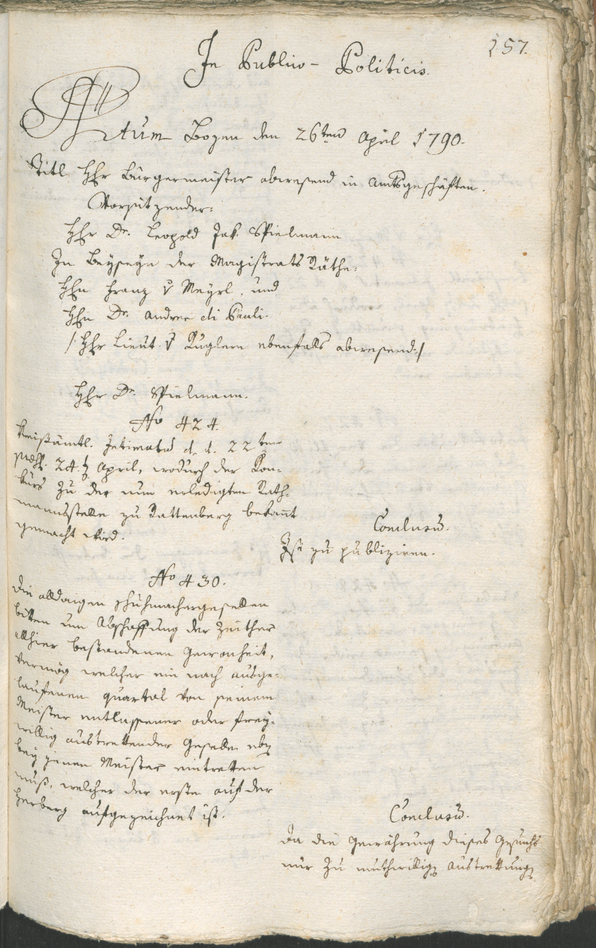 157.
In Publico-Politicis.
Actum Bozen den 26ten April 1790.
Titl Hhr Bürgermeister abwesend in Amtsgeschäften.
Vorsitzender:
Hhr Dr. Leopold Jak Spielmann
In Beyseyn der Magistrats Räthe:
Hhn Franz v Meyrl, und
Hhn Dr. Andree di Pauli.
/: Hhr Lieut. v Kuglern ebenfalls abwesend :/
Hhr Dr. Spielmann.
No 424.
Kreisämtl. Intimatum d. d. 22ten
24t April, wodurch der Con-
kurs zu der nun erledigten Rath-
mannsstelle zu Rattenberg bekannt
gemacht wird.
Conclusum.
Ist zu publiziren.
No 430.
Die alldaigen Schuhmachergesellen
bitten um Abschaffung der Zeither
allhier bestandenen Gewonheit,
vermög welcher ein nach ausge-
laufenen Quartal von seinem
Meister entlassener oder frey-
willig austrettender Geselle eben
bey jenem Meister eintretten
muß, welcher der erste auf der
Herberg aufgezeichnet ist.
Conclusum.
Da die Gewährung dieses Gesuchs
nur zu muthwillige Austrettung